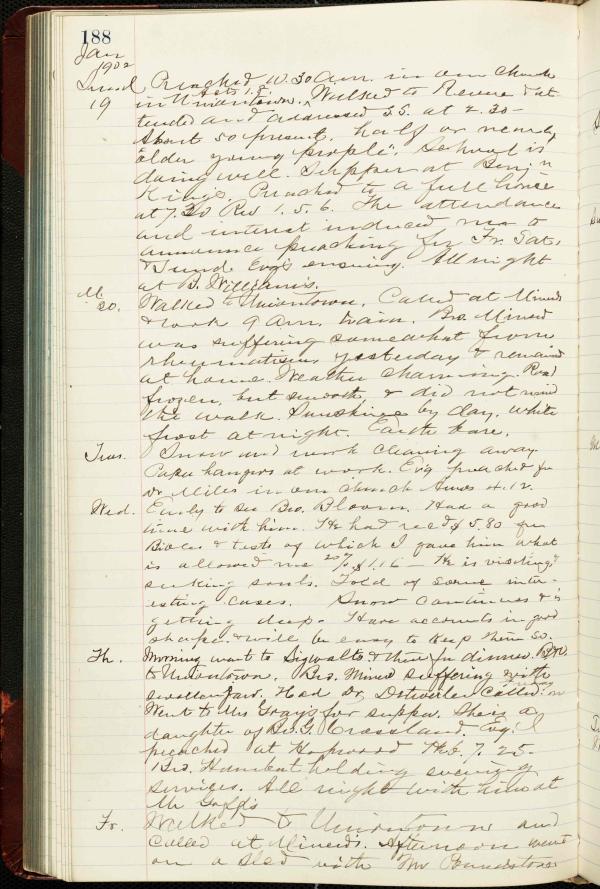 188
Jan
1902
Sund Preached 10.30 A.m. in our Church
19 in Uniontown. Acts 1.8. Walked to Revere & at
tended and addressed S.S. at 2.30 -
About 50 present, half or nearly
"older young people". School is
doing well. Supper at Benj.n
King's. Preached to a full house
at 7.30 Rev 1. 5. 6. The attendance
and interest induced me to
announce preaching for Fr. Sat.
& Sund. Evg's ensuing. All night
at B. William's.
M
20. Walked to Uniontown. Called at Minerds
& took 9 A.m. train. Bro. Minerd
was suffering somewhat from
rheumatism yesterday & remained
at home. Weather charming. Road
frozen, but smooth, & did not mind
the walk. Sunshine by day. White
frost at night. Earth bare.
Tues. Snow and work cleaning away
Paper hangers at work. Evg preached for
Dr Miles in our Church Amos 4.12.
Wed. Early to see Bro. Bloom. Had a good
time with him. He had recd $5.80 for
Bibles & tests of which I gave him what
is allowed me 20% $1.16 - He is visiting &
seeking souls. Told of some inter-
esting cases. Snow continues & is
getting deep. Have accounts in good
shape & will be easy to keep them so.
Th. Morning went to Sigwalts & there for dinner.
to Uniontown. Bro. Minerd suffering with
swollen jaw. Had Dr. Detweiler called in
Went to Mrs Gray's for supper. She is a
daughter of Bro. G. Crossland. Evg. I
preached at Hopwood Heb. 7. 25 -
Bro. Humbert holding evening
services. All night with him at
Mr Goff's
Fr. Walked to Uniontown and
called at Minerd's. Afternoon went
on a sled with Mr Poundstone